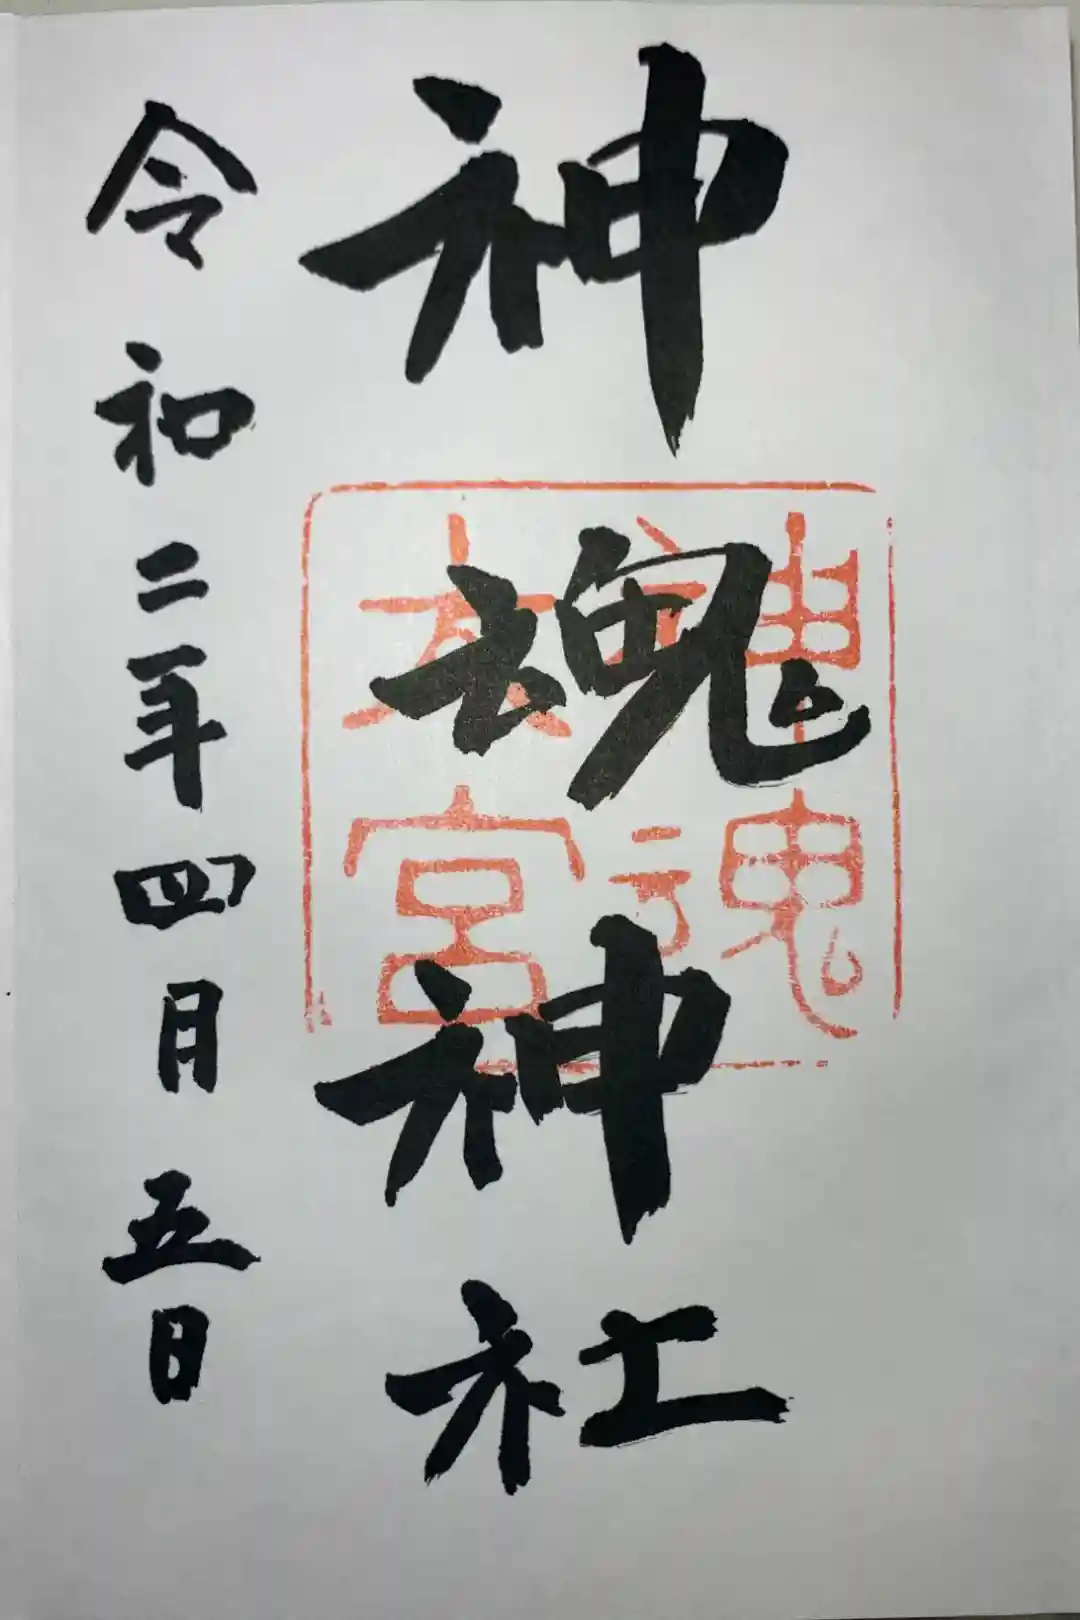 神魂神社
神魂
大宮
令和二年四月五日